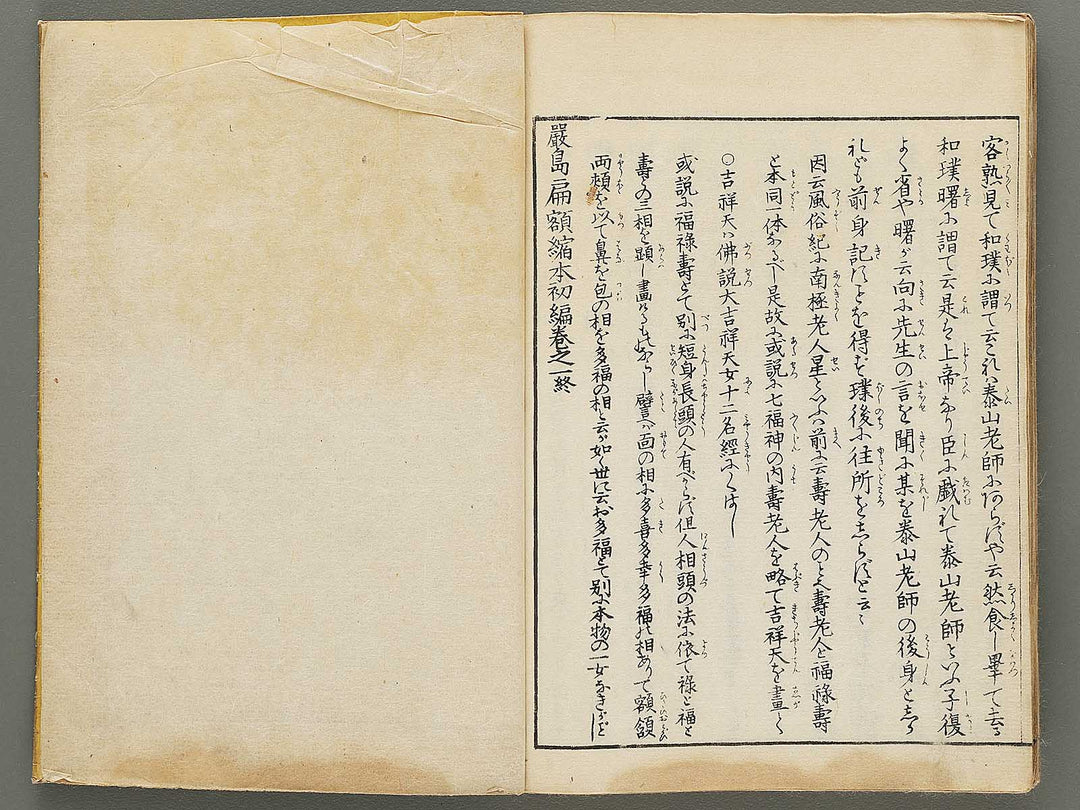 客熟見て和璞に謂て云これハ泰山老師にあらずや云然食し畢て去る
和璞曙に謂て云是ハ上帝なり臣に戯れて泰山老師といふ子復
よく省や曙が云向に先生の言を聞に某を泰山老師の後身としら
れども前身記ことを得ず璞後に住所をしらずと云々
因云風俗紀に南極老人星といふハ前に云壽老人のこと壽老人と福祿壽
と本同一体なるべし是故に或説に七福神の内壽老人を略て吉祥天を畫く
○吉祥天ハ佛説大吉祥天女十二名經にくはし
或説に福祿壽とて別に短身長頭の人有べからず但人相頭の法に依て祿と福と
壽の三相を顕し畫ける ものならし譬バ面の相に多喜多幸多福の相あつて額頷
両頬を以て鼻を包の相を多福の相と云が如く世に云お多福とて別に本物の一女なきがごとし
嚴島扁額縮本初編巻之一終